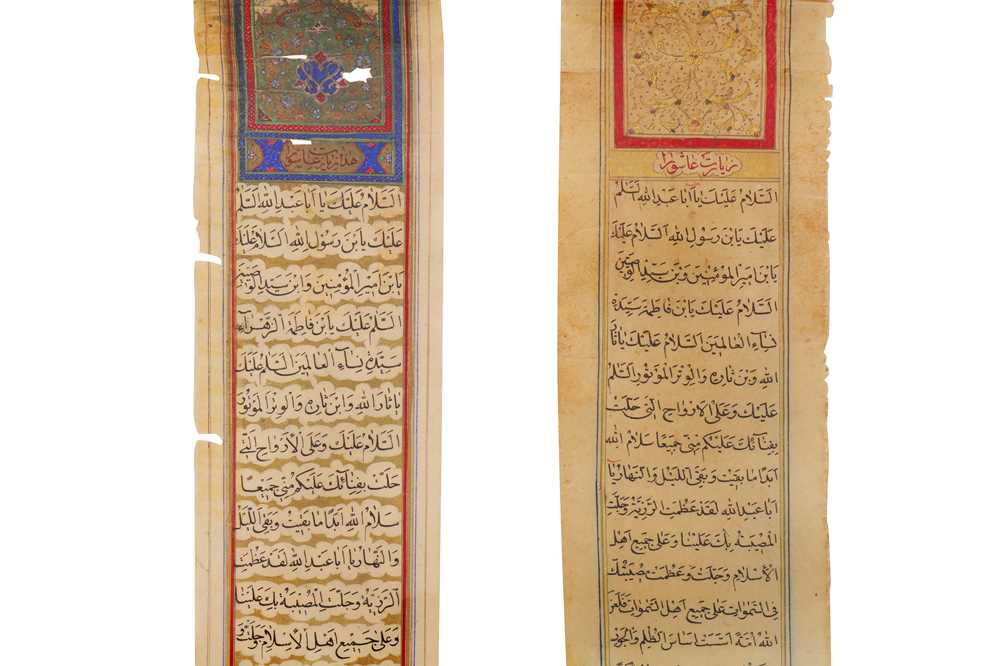 هذا زیارت عاشورا
السَّلامُ عَلَيْكَ يا اَبا عَبْدِ اللهِ السَّلامُ
عَلَيْكَ يَابْنَ رَسُولِ اللهِ السَّلامُ عَلَيْكَ
يَابْنَ اَمِيرِ الْمُؤْمِنِينَ وَابْنَ سَيِّدِ الْوَصِيّينَ
السَّلمُ عَلَيْكَ يَابْنَ فاطِمَةَ الزَّهْراءِ
سَيِّدَةِ نِساءِ الْعالَمِينَ السَّلمُ عَلَيْكَ
يا ثارَ اللهِ وَابْنَ ثارِهِ وَالْوِتْرَ الْمَوْتُورَ
السَّلامُ عَلَيْكَ وَعَلَى الْاَرْواحِ الَّتي
حَلَّتْ بِفِنائِكَ عَلَيْكُمْ مِنّي جَميعاً
سَلامُ اللهِ اَبَداً ما بَقيتُ وَبَقِيَ اللَّيْلُ
وَالنَّهارُ يا اَبا عَبْدِ اللهِ لَقَدْ عَظُمَتِ
الرَّزِيَّةُ وَجَلَّتِ الْمُصيبَةُ بِكَ عَلَيْنا
وَعَلى جَميعِ اَهْلِ الْاِسْلامِ وَجَلَّتْ وَ
زیارت عاشورا
السَّلامُ عَلَيْكَ يا اَبا عَبْدِ اللهِ السَّلمُ
عَلَيْكَ يَابْنَ رَسُولِ اللهِ السَّلامُ عَلَيْكَ
يَابْنَ اَميرِ الْمُؤْمِنينَ وَبْنَ سَيِّدِ الْوَصِيّينَ
السَّلامُ عَلَيْكَ يَابْنَ فاطِمَةَ سَيِّدَةِ
نِساءِ الْعالَمينَ السَّلامُ عَلَيْكَ يا ثارَ
اللهِ وَبْنَ ثارِهِ وَالْوِتْرَ الْمَوْتُورَ السَّلمُ
عَلَيْكَ وَعَلَى الْاَرْواحِ الَّتي حَلَّتْ
بِفِنائِكَ عَلَيْكُمْ مِنّي جَميعاً سَلامُ اللهِ
اَبَداً ما بَقيتُ وَبَقِيَ اللَّيْلُ وَالنَّهارُ يا
اَبا عَبْدِ اللهِ لَقَدْ عَظُمَتِ الرَّزِيَّةُ وَجَلَّتِ
الْمُصيبَةُ بِكَ عَلَيْنا وَعَلى جَميعِ اَهْلِ
الْاِسْلامِ وَجَلَّتْ وَعَظُمَتْ مُصيبَتُكَ
فِي السَّمواتِ عَلى جَميعِ اَهْلِ السَّمواتِ فَلَعَنَ
اللهُ اُمَّةً اَسَّسَتْ اَساسَ الظُّلْمِ وَالْجَوْرِ